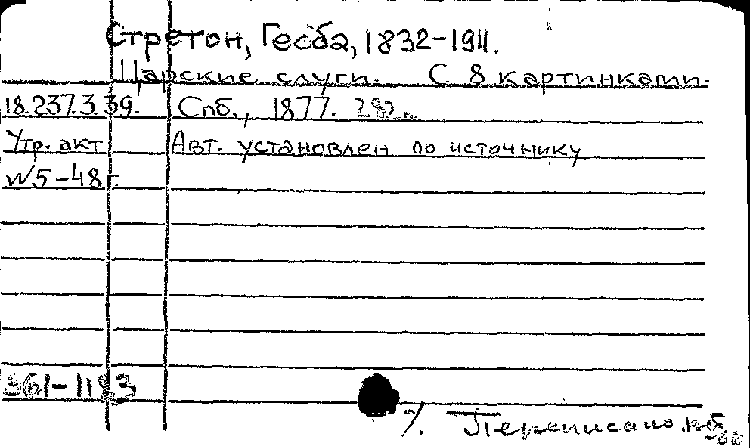 Стретон, Гесба, 1832-1911.
Царские слуги. С 8 картинками.
18.237.3.39. Спб., 1877. 282 с.
Утр. акт Авт. установлен по источнику
№5-48г.
361-1193
%. Переписано.